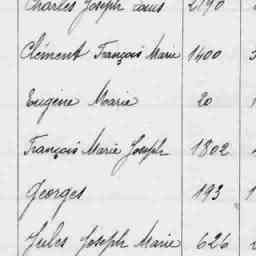 Charles Joseph Louis 2490
Clément François Marie 1400
Eugène Marie 20
François Marie Joseph 1802
Georges 193
Jules Joseph Marie 626